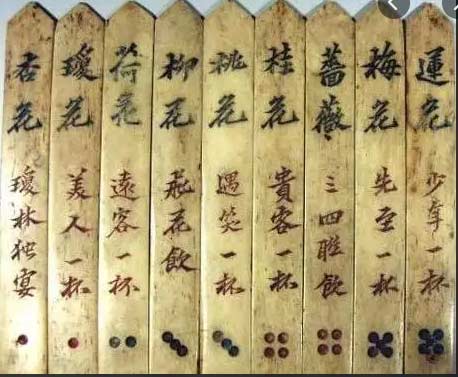 運花
少年一杯
梅花
先至一杯
薔薇
三四飲
桂花
貴客一杯
桃花
遇笑一杯
柳花
飛花飲
荷花
遠客一杯
瓊花
美人一杯
杏花
瓊林独宴